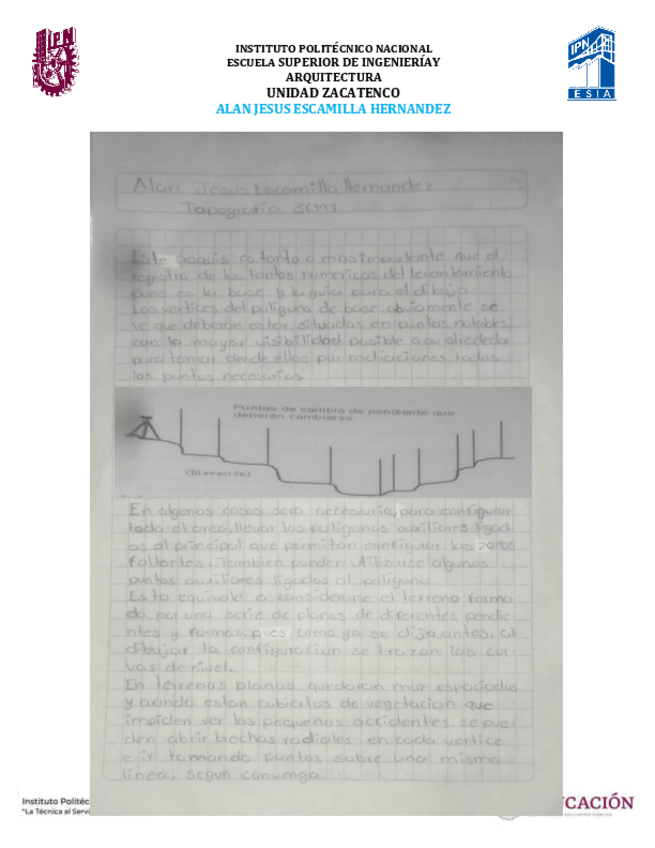 INSTITUTO POLITÉCNICO NACIONAL
ESCUELA SUPERIOR DE INGENIERÍAY
ARQUITECTURA
UNIDAD ZACATENCO
ALAN JESUS ESCAMILLA HERNANDEZ
IPN
IPN
ESIA
Alan Jesus Escamilla Hernandez
Topografia
Este croquis es tanto o mas importante que el
registro de los tantos numericos del levantamiento
pues es la base y la guia para el dibujo.
Los vertices del poligono de base, obviamente se
ve que deberan estar situados en puntos notables,
con la mayor visibilidad posible a su alrededor
para tomar desde ellos por radiaciones todos
los puntos necesarios
Puntos de cambio de pendiente que
deberán cambiarse
(Elevación)
En algunos casos sera necesario, para configurar
toda el area, llevar los poligonos auxiliares ligad-
os al principal que permitan configurar las zonas
faltantes. Tambien pueden utilizarse algunos
puntos auxiliares ligados al poligono
Esto equivale a considerarse el terreno forma-
do por una serie de planos de diferentes pendie-
ntes y formas, pues como ya se dijo antes, al
dibujar la configuracion se trazan las cur-
vas de nivel.
En terrenos planos quedaran muy espaciadas
y cuando estan cubiertos de vegetacion que
impiden ver los pequeños accidentes, se pue-
den abrir brechas radiales en cada vertice
e ir tomando puntos sobre una misma
linea, segun convenga.
Instituto Politéc
"La Técnica al Servi
UCACIÓN